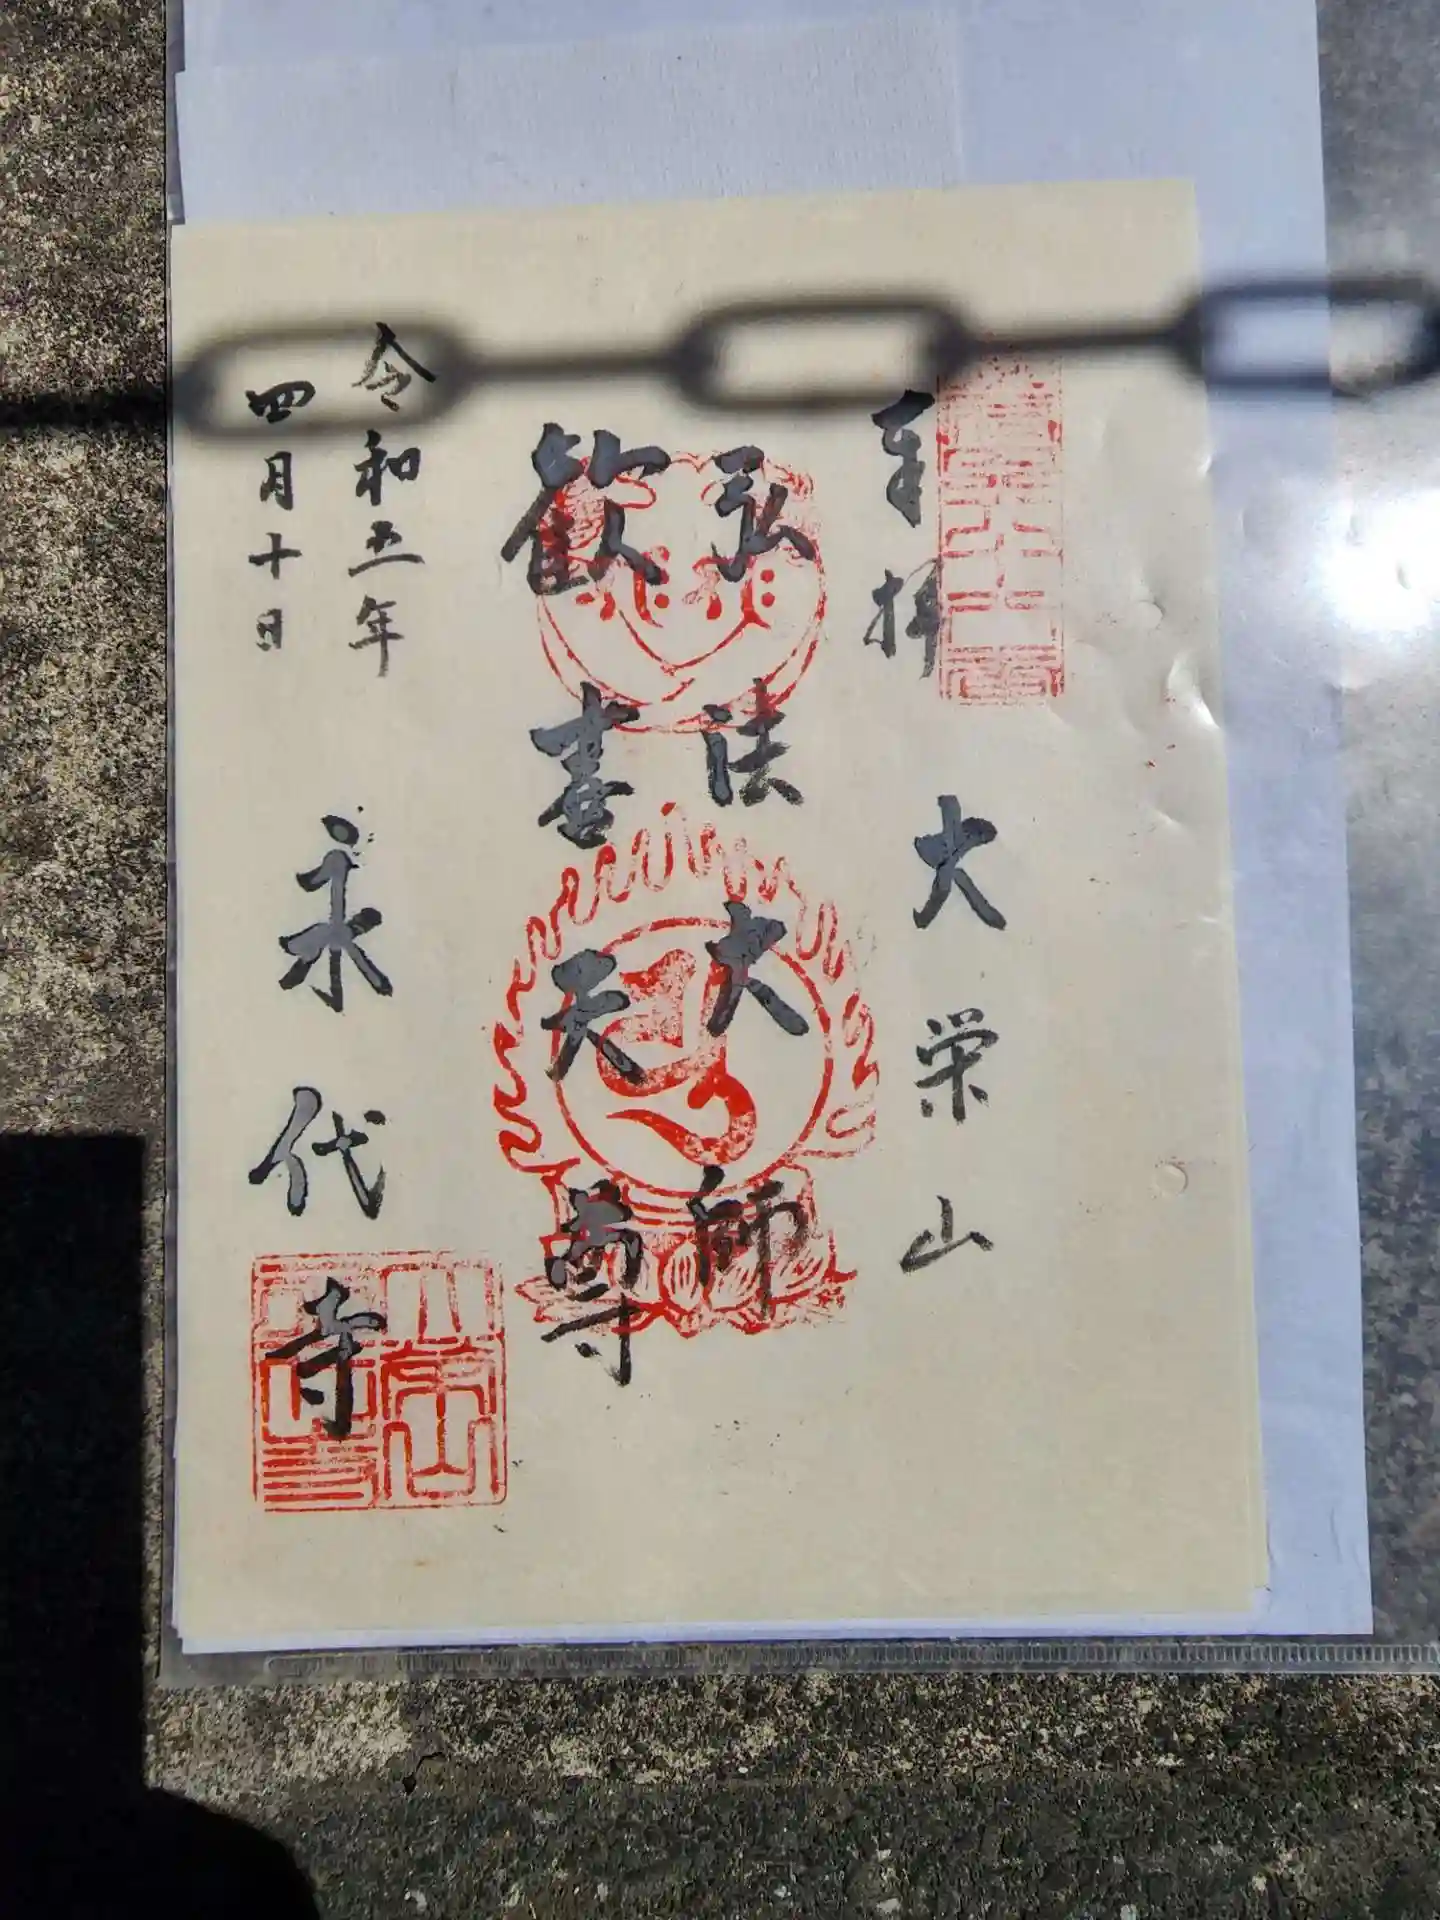 奉拝
大栄山
弘法大師
歓喜天尊
令和五年
四月十日
永代寺